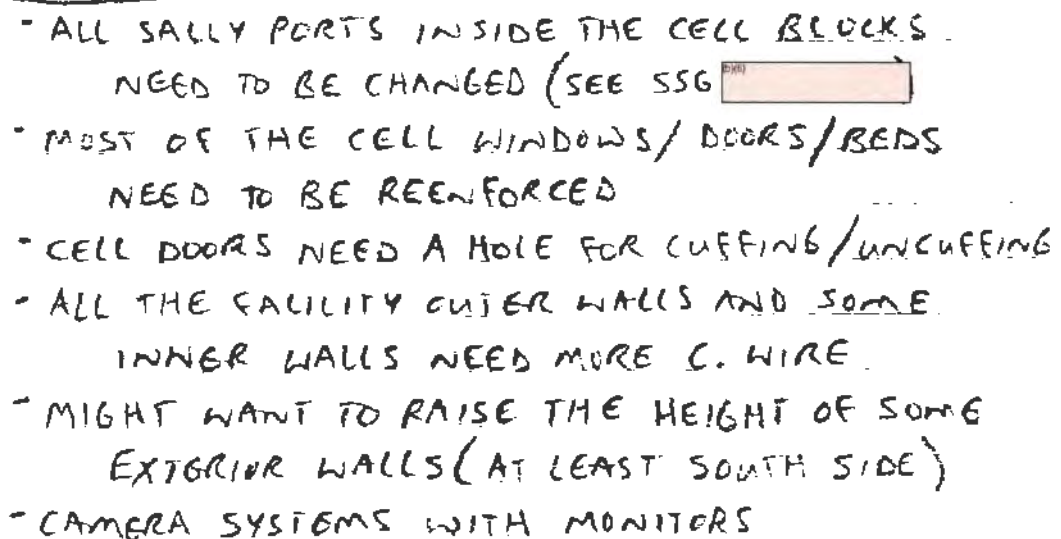 - ALL SALLY PORTS INSIDE THE CELL BLOCKS
NEED TO BE CHANGED (SEE SSG (b)(6) )
- MOST OF THE CELL WINDOWS/DOORS/BEDS
NEED TO BE REENFORCED
- CELL DOORS NEED A HOLE FOR CUFFING/UNCUFFING
- ALL THE FACILITY OUTER WALLS AND SOME
INNER WALLS NEED MORE C. WIRE
- MIGHT WANT TO RAISE THE HEIGHT OF SOME
EXTERIOR WALLS (AT LEAST SOUTH SIDE)
- CAMERA SYSTEMS WITH MONITORS